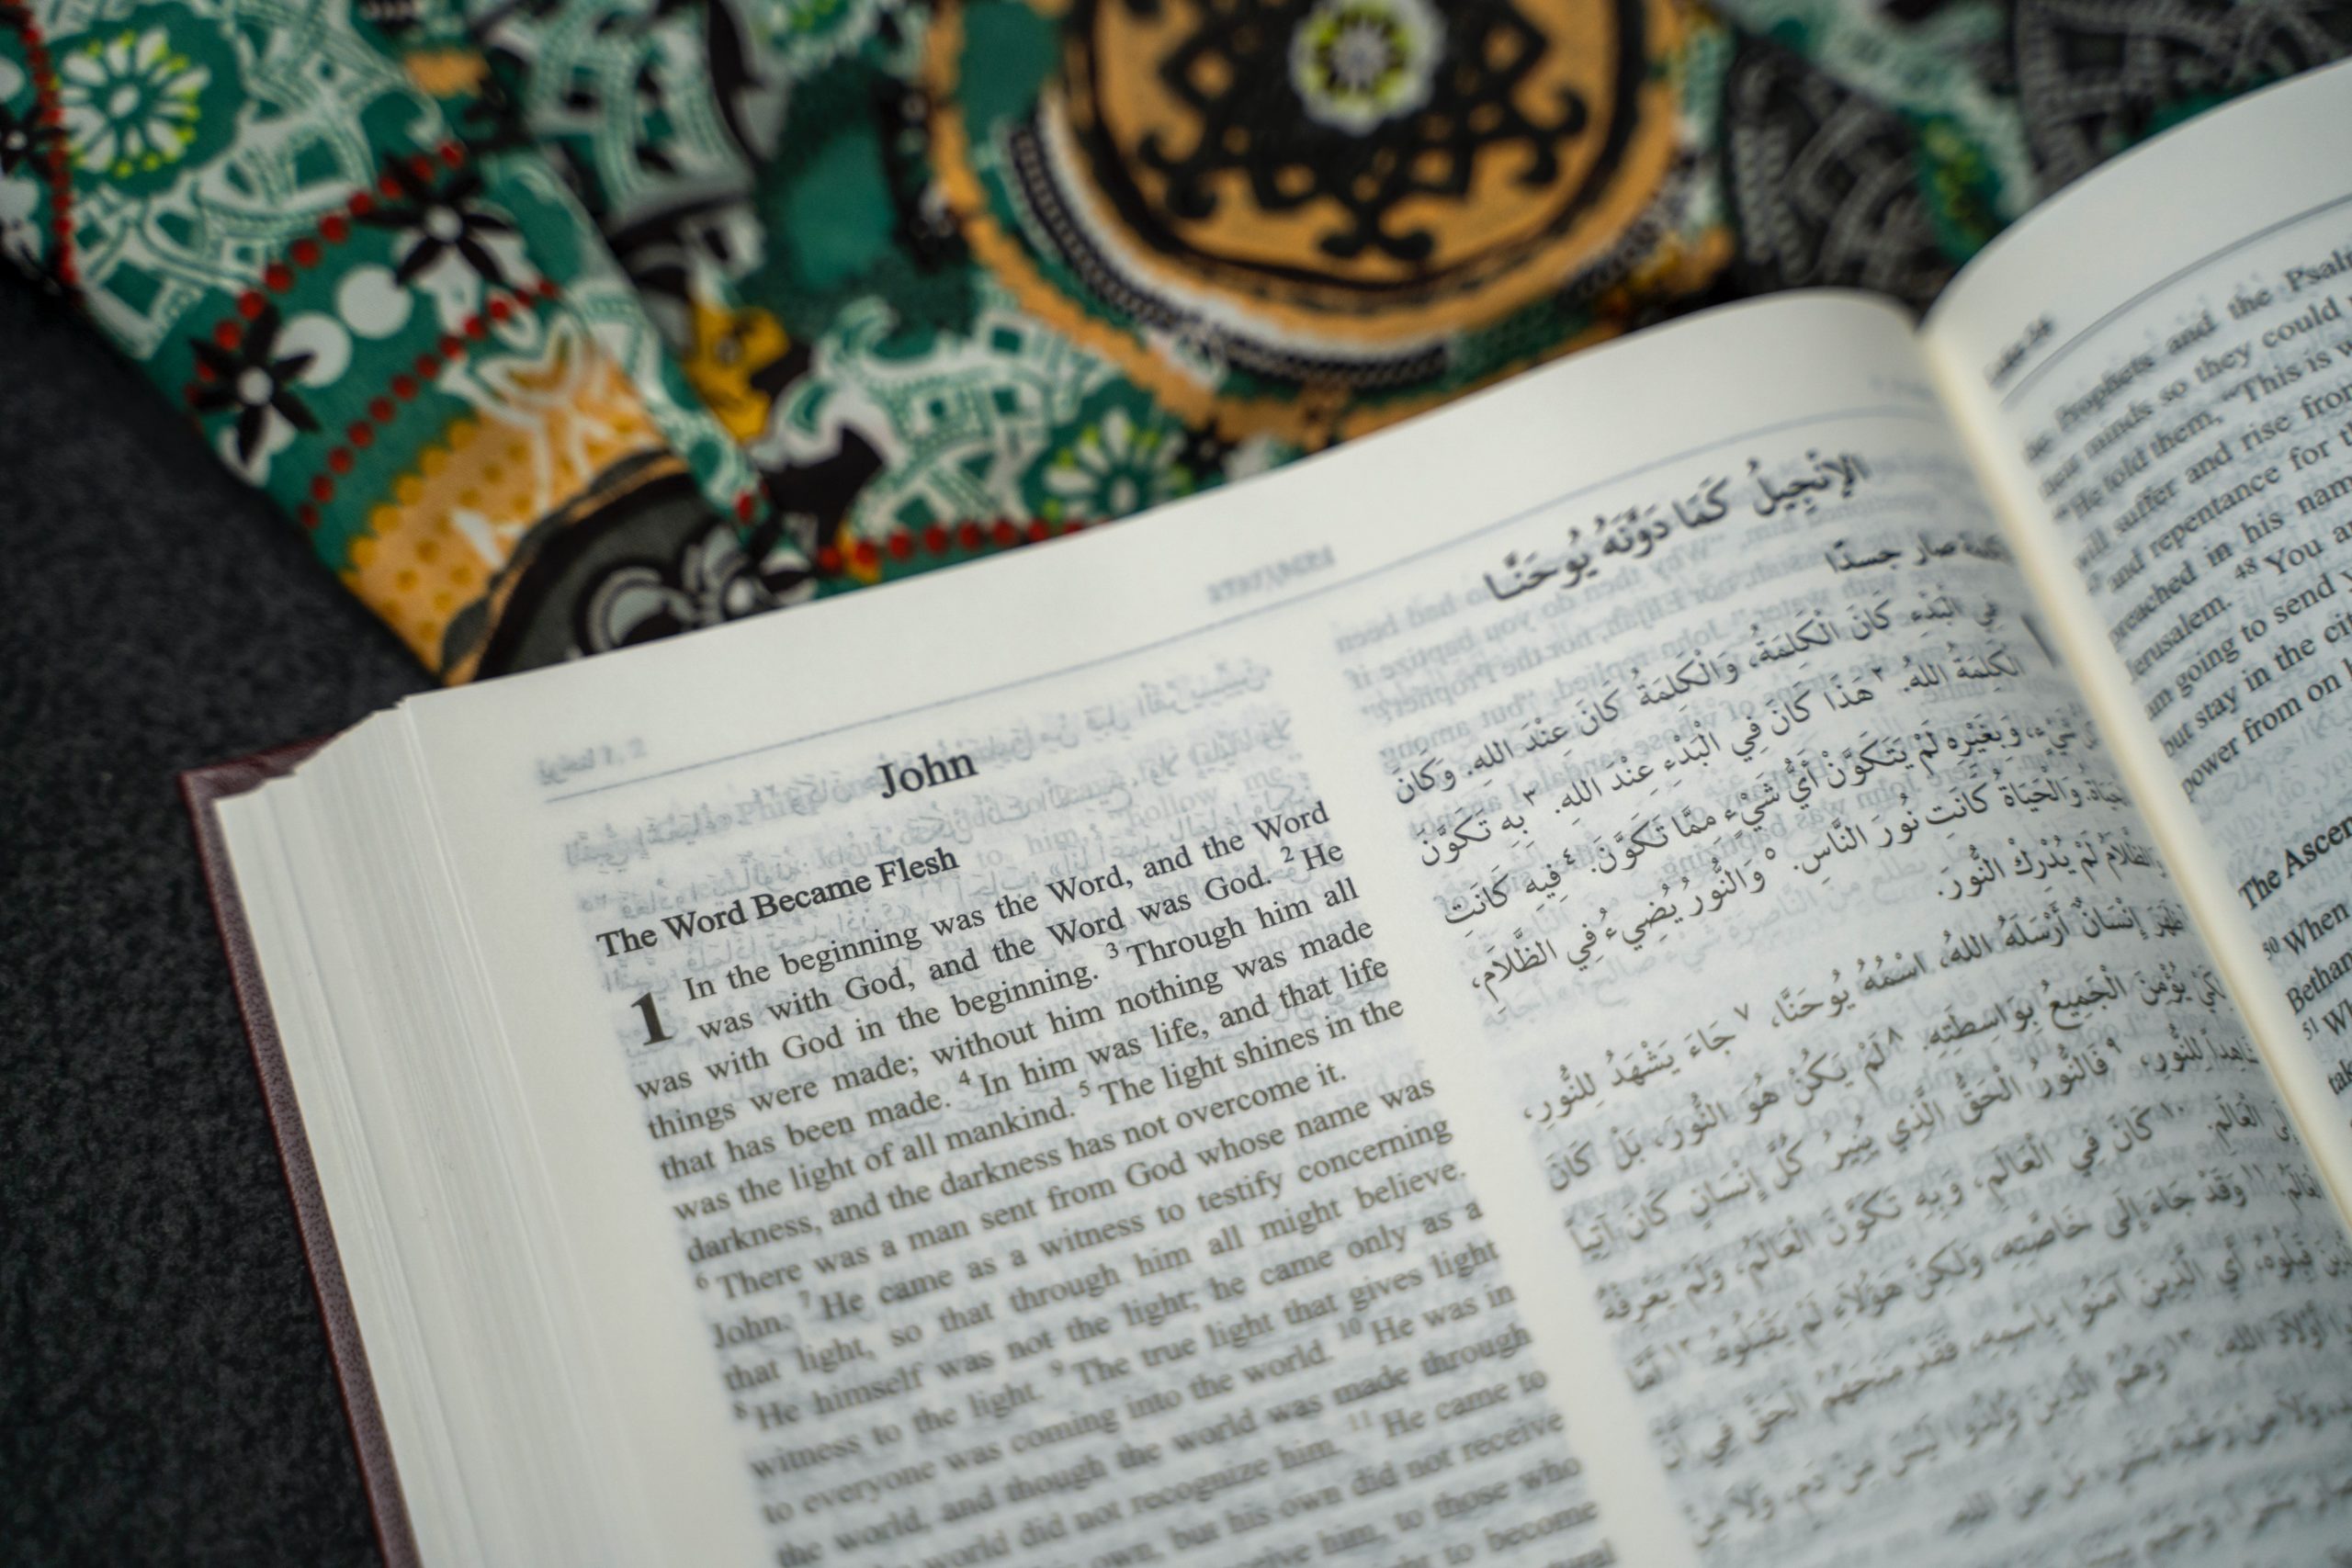 John
The Word Became Flesh
1 In the beginning was the Word, and the Word
was with God, and the Word was God. 2 He
was with God in the beginning. 3 Through him all
things were made; without him nothing was made
that has been made. 4 In him was life, and that life
was the light of all mankind. 5 The light shines in the
darkness, and the darkness has not overcome it.
6 There was a man sent from God whose name was
John. 7 He came as a witness to testify concerning
that light, so that through him all might believe.
8 He himself was not the light; he came only as a
witness to the light. 9 The true light that gives light
to everyone was coming into the world. 10 He was in
the world, and though the world was made through
world did not recognize him. 11 He came to
own, but his own did not receive
receive him, to those who
to become
الإنْجِيلُ كَمَا دَوَّنَهُ يُوحَنَّا
صار جسدًا
فِي الْبَدْءِ كَانَ الْكَلِمَةُ، وَالْكَلِمَةُ كَانَ عِنْدَ اللهِ. وَكَانَ
الْكَلِمَةُ اللهُ. ٢ هَذَا كَانَ فِي الْبَدْءِ عِنْدَ اللهِ. ٣ بِهِ تَكَوَّنَ
شَيْءٍ، وَبِغَيْرِهِ لَمْ يَتَكَوَّنْ أَيُّ شَيْءٍ مِمَّا تَكَوَّنَ. ٤ فِيهِ كَانَتِ
الْحَيَاةُ. وَالْحَيَاةُ كَانَتِ نُورَ النَّاسِ. ٥ وَالنُّورُ يُضِيءُ فِي الظَّلاَمِ،
وَالظَّلاَمُ لَمْ يُدْرِكْ النُّورَ.
ظَهَرَ إِنْسَانٌ أَرْسَلَهُ اللهُ، اسْمُهُ يُوحَنَّا، ٧ جَاءَ يَشْهَدُ لِلنُّورِ،
لِكَيْ يُؤْمِنَ الْجَمِيعُ بِوَاسِطَتِهِ. ٨ لَمْ يَكُنْ هُوَ النُّورَ، بَلْ كَانَ
شَاهِداً لِلنُّورِ، ٩ فَالنُّورُ الْحَقُّ الَّذِي يُنِيرُ كُلَّ إِنْسَانٍ كَانَ آتِياً
إِلَى الْعَالَمِ. ١٠ كَانَ فِي الْعَالَمِ، وَبِهِ تَكَوَّنَ الْعَالَمُ، وَلَمْ يَعْرِفْهُ
الْعَالَمُ. ١١ وَقَدْ جَاءَ إِلَى خَاصَّتِهِ، وَلَكِنَّ هَؤُلاَءِ لَمْ يَقْبَلُوهُ. ١٢ أَمَّا
الَّذِينَ قَبِلُوهُ، أَيِ الَّذِينَ آمَنُوا بِاسْمِهِ، فَقَدْ مَنَحَهُمُ الْحَقَّ فِي أَنْ
أَوْلاَدَ اللهِ، ١٣ وَهُمُ الَّذِينَ وُلِدُوا لَيْسَ مِنْ دَمٍ، وَلاَ مِنْ
Prophets and the
minds so they could
"He told them, "This is
will suffer and rise from
and repentance for
preached in his name
Jerusalem. 48 You
am going to send
but stay in the
power from on
The
50 When
51